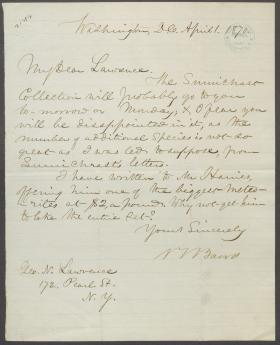 Washington, D.C. April 1. 1870.
My Dear Lawrence.
The Sumichrast
Collection will probably go to you
to-morrow or Monday; & I fear you
will be disappointed in it, as the
number of additional species is not so
great as I was led to suppose, from
Sumichrast's letters.
I have written to Mr
offering him one of the biggest meteo-
rites at $2, a pound. Why not get him
to take the entire lot?
Yours Sincerely
Geo. N. Lawrence
172. Pearl St.
N. Y.